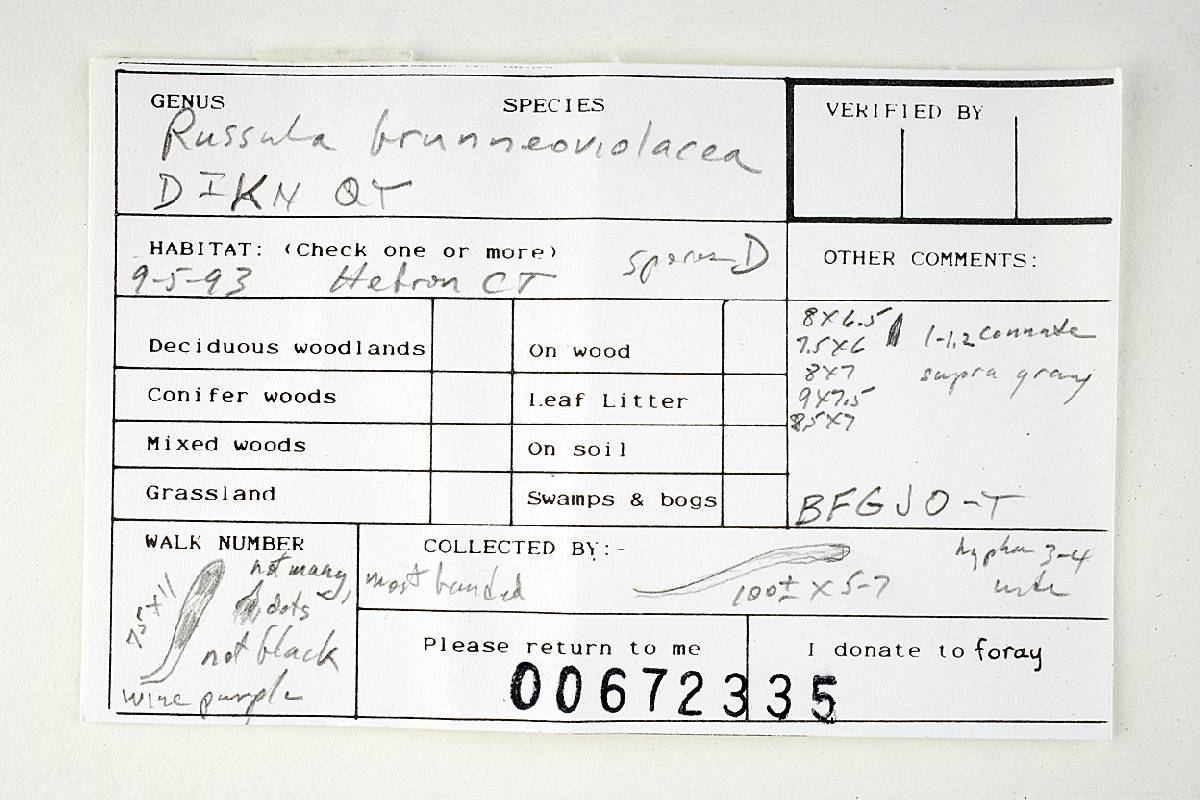 GENUS SPECIES
Russula brunneoviolacea
DIKN QT
VERIFIED BY
HABITAT: (Check one or more) spores D
9-5-93 Hebron CT
OTHER COMMENTS:
Deciduous woodlands On wood
Conifer woods Leaf Litter
Mixed woods On soil
Grassland Swamps & bogs
8x6.5 1-1.2 connate
7.5x6
8x7 supra gray
9x7.5
8.5x7
BFGJO-T
WALK NUMBER
75 x 11 not many
dots
not black
wine purple
COLLECTED BY:-
most banded 100± x 5-7
hyphae 3-4
wide
Please return to me I donate to foray
00672335